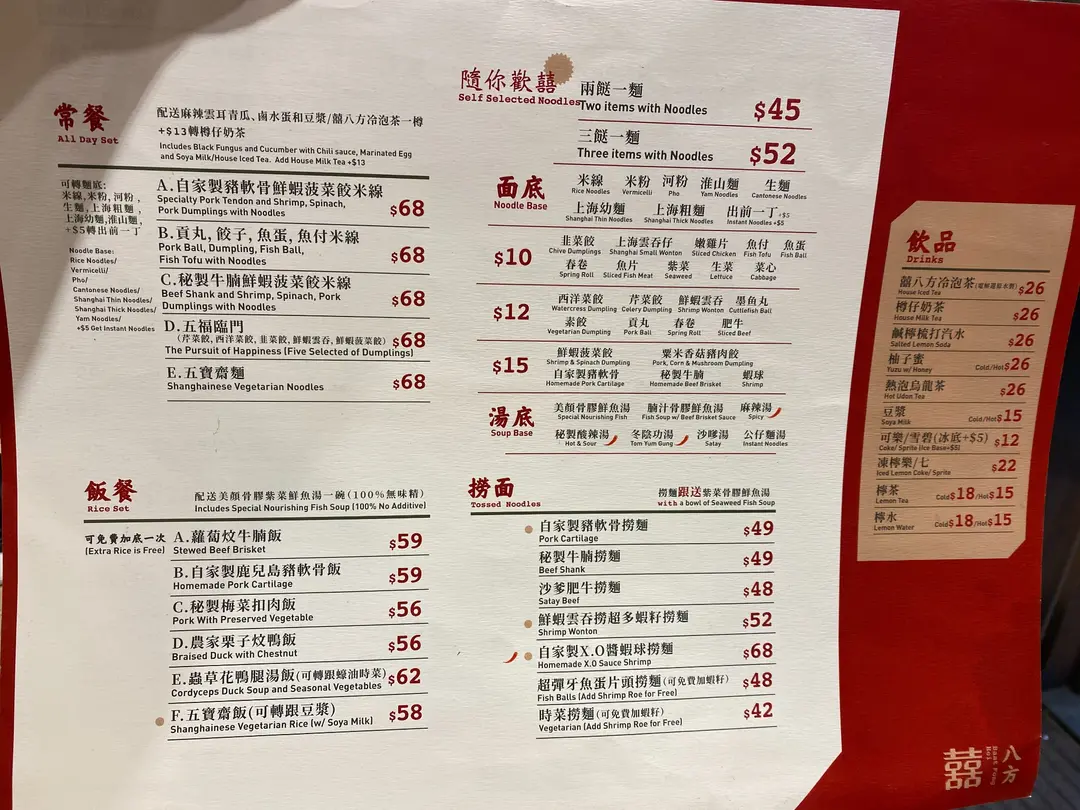 常餐
All Day Set
配送麻辣雲耳青瓜、鹵水蛋和豆漿/囍八方冷泡茶一樽
+$13轉樽仔奶茶
Includes Black Fungus and Cucumber with Chili sauce, Marinated Egg
and Soya Milk/House Iced Tea. Add House Milk Tea +$13
可轉麵底:
米線,米粉,河粉,
生麵,上海粗麵,
上海幼麵,淮山麵,
+$5轉出前一丁
Noodle Base:
Rice Noodles/
Vermicelli/
Pho/
Cantonese Noodles/
Shanghai Thin Noodles/
Shanghai Thick Noodles/
Yam Noodles/
+$5 Get Instant Noodles
A.自家製豬軟骨鮮蝦菠菜餃米線
Specialty Pork Tendon and Shrimp, Spinach,
Pork Dumplings with Noodles
$68
B.貢丸, 餃子, 魚蛋, 魚付米線
Pork Ball, Dumpling, Fish Ball,
Fish Tofu with Noodles
$68
C.秘製牛腩鮮蝦菠菜餃米線
Beef Shank and Shrimp, Spinach, Pork
Dumplings with Noodles
$68
D.五福臨門
(芹菜餃, 西洋菜餃, 韭菜餃, 鮮蝦雲吞, 鮮蝦菠菜餃)
The Pursuit of Happiness (Five Selected of Dumplings)
$68
E.五寶齋麵
Shanghainese Vegetarian Noodles
$68
飯餐
Rice Set
配送美顏骨膠紫菜鮮魚湯一碗(100%無味精)
Includes Special Nourishing Fish Soup (100% No Additive)
可免費加底一次
(Extra Rice is Free)
A.蘿蔔炆牛腩飯
Stewed Beef Brisket
$59
B.自家製鹿兒島豬軟骨飯
Homemade Pork Cartilage
$59
C.秘製梅菜扣肉飯
Pork With Preserved Vegetable
$56
D.農家栗子炆鴨飯
Braised Duck with Chestnut
$56
E.蟲草花鴨腿湯飯(可轉跟蠔油時菜)
Cordyceps Duck Soup and Seasonal Vegetables
$62
F.五寶齋飯(可轉跟豆漿)
Shanghainese Vegetarian Rice (w/ Soya Milk)
$58
隨你歡囍
Self Selected Noodles
兩餸一麵
Two items with Noodles
$45
三餸一麵
Three items with Noodles
$52
面底
Noodle Base
米線 米粉 河粉 淮山麵 生麵
Rice Noodles Vermicelli Pho Yam Noodles Cantonese Noodles
上海幼麵 上海粗麵 出前一丁+$5
Shanghai Thin Noodles Shanghai Thick Noodles Instant Noodles +$5
$10
韭菜餃 上海雲吞仔 嫩雞片 魚付 魚蛋
Chive Dumplings Shanghai Small Wonton Sliced Chicken Fish Tofu Fish Ball
春卷 魚片 紫菜 生菜 菜心
Spring Roll Sliced Fish Meat Seaweed Lettuce Cabbage
$12
西洋菜餃 芹菜餃 鮮蝦雲吞 墨魚丸
Watercress Dumpling Celery Dumpling Shrimp Wonton Cuttlefish Ball
素餃 貢丸 春卷 肥牛
Vegetarian Dumpling Pork Ball Spring Roll Sliced Beef
$15
鮮蝦菠菜餃 粟米香菇豬肉餃
Shrimp & Spinach Dumpling Pork, Corn & Mushroom Dumpling
自家製豬軟骨 秘製牛腩 蝦球
Homemade Pork Cartilage Homemade Beef Brisket Shrimp
湯底
Soup Base
美顏骨膠鮮魚湯 腩汁骨膠鮮魚湯 麻辣湯
Special Nourishing Fish Fish Soup w/ Beef Brisket Sauce Spicy
秘製酸辣湯 冬陰功湯 沙嗲湯 公仔麵湯
Hot & Sour Tom Yum Gung Satay Instant Noodles
撈面
Tossed Noodles
撈麵跟送紫菜骨膠鮮魚湯
with a bowl of Seaweed Fish Soup
自家製豬軟骨撈麵
Pork Cartilage
$49
秘製牛腩撈麵
Beef Shank
$49
沙爹肥牛撈麵
Satay Beef
$48
鮮蝦雲吞撈超多蝦籽撈麵
Shrimp Wonton
$52
自家製X.O醬蝦球撈麵
Homemade X.O Sauce Shrimp
$68
超彈牙魚蛋片頭撈麵(可免費加蝦籽)
Fish Balls (Add Shrimp Roe for Free)
$48
時菜撈麵(可免費加蝦籽)
Vegetarian (Add Shrimp Roe for Free)
$42
飲品
Drinks
囍八方冷泡茶
House Iced Tea
$26
樽仔奶茶
House Milk Tea
$26
鹹檸檬打汽水
Salted Lemon Soda
$26
柚子蜜
Yuzu w/ Honey
Cold/Hot $26
熱泡烏龍茶
Hot Udon Tea
$26
豆漿
Soya Milk
Cold/Hot $15
可樂/雪碧(冰底+$5)
Coke/ Sprite (Ice Base+$5)
$12
凍檸樂/七
Iced Lemon Coke/ Sprite
$22
檸茶
Lemon Tea
Cold$18/Hot$15
檸水
Lemon Water
Cold$18/Hot$15
囍
八方